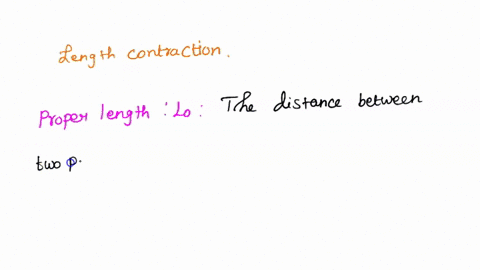 Length contraction.
Proper length : Lo : The distance between
two p